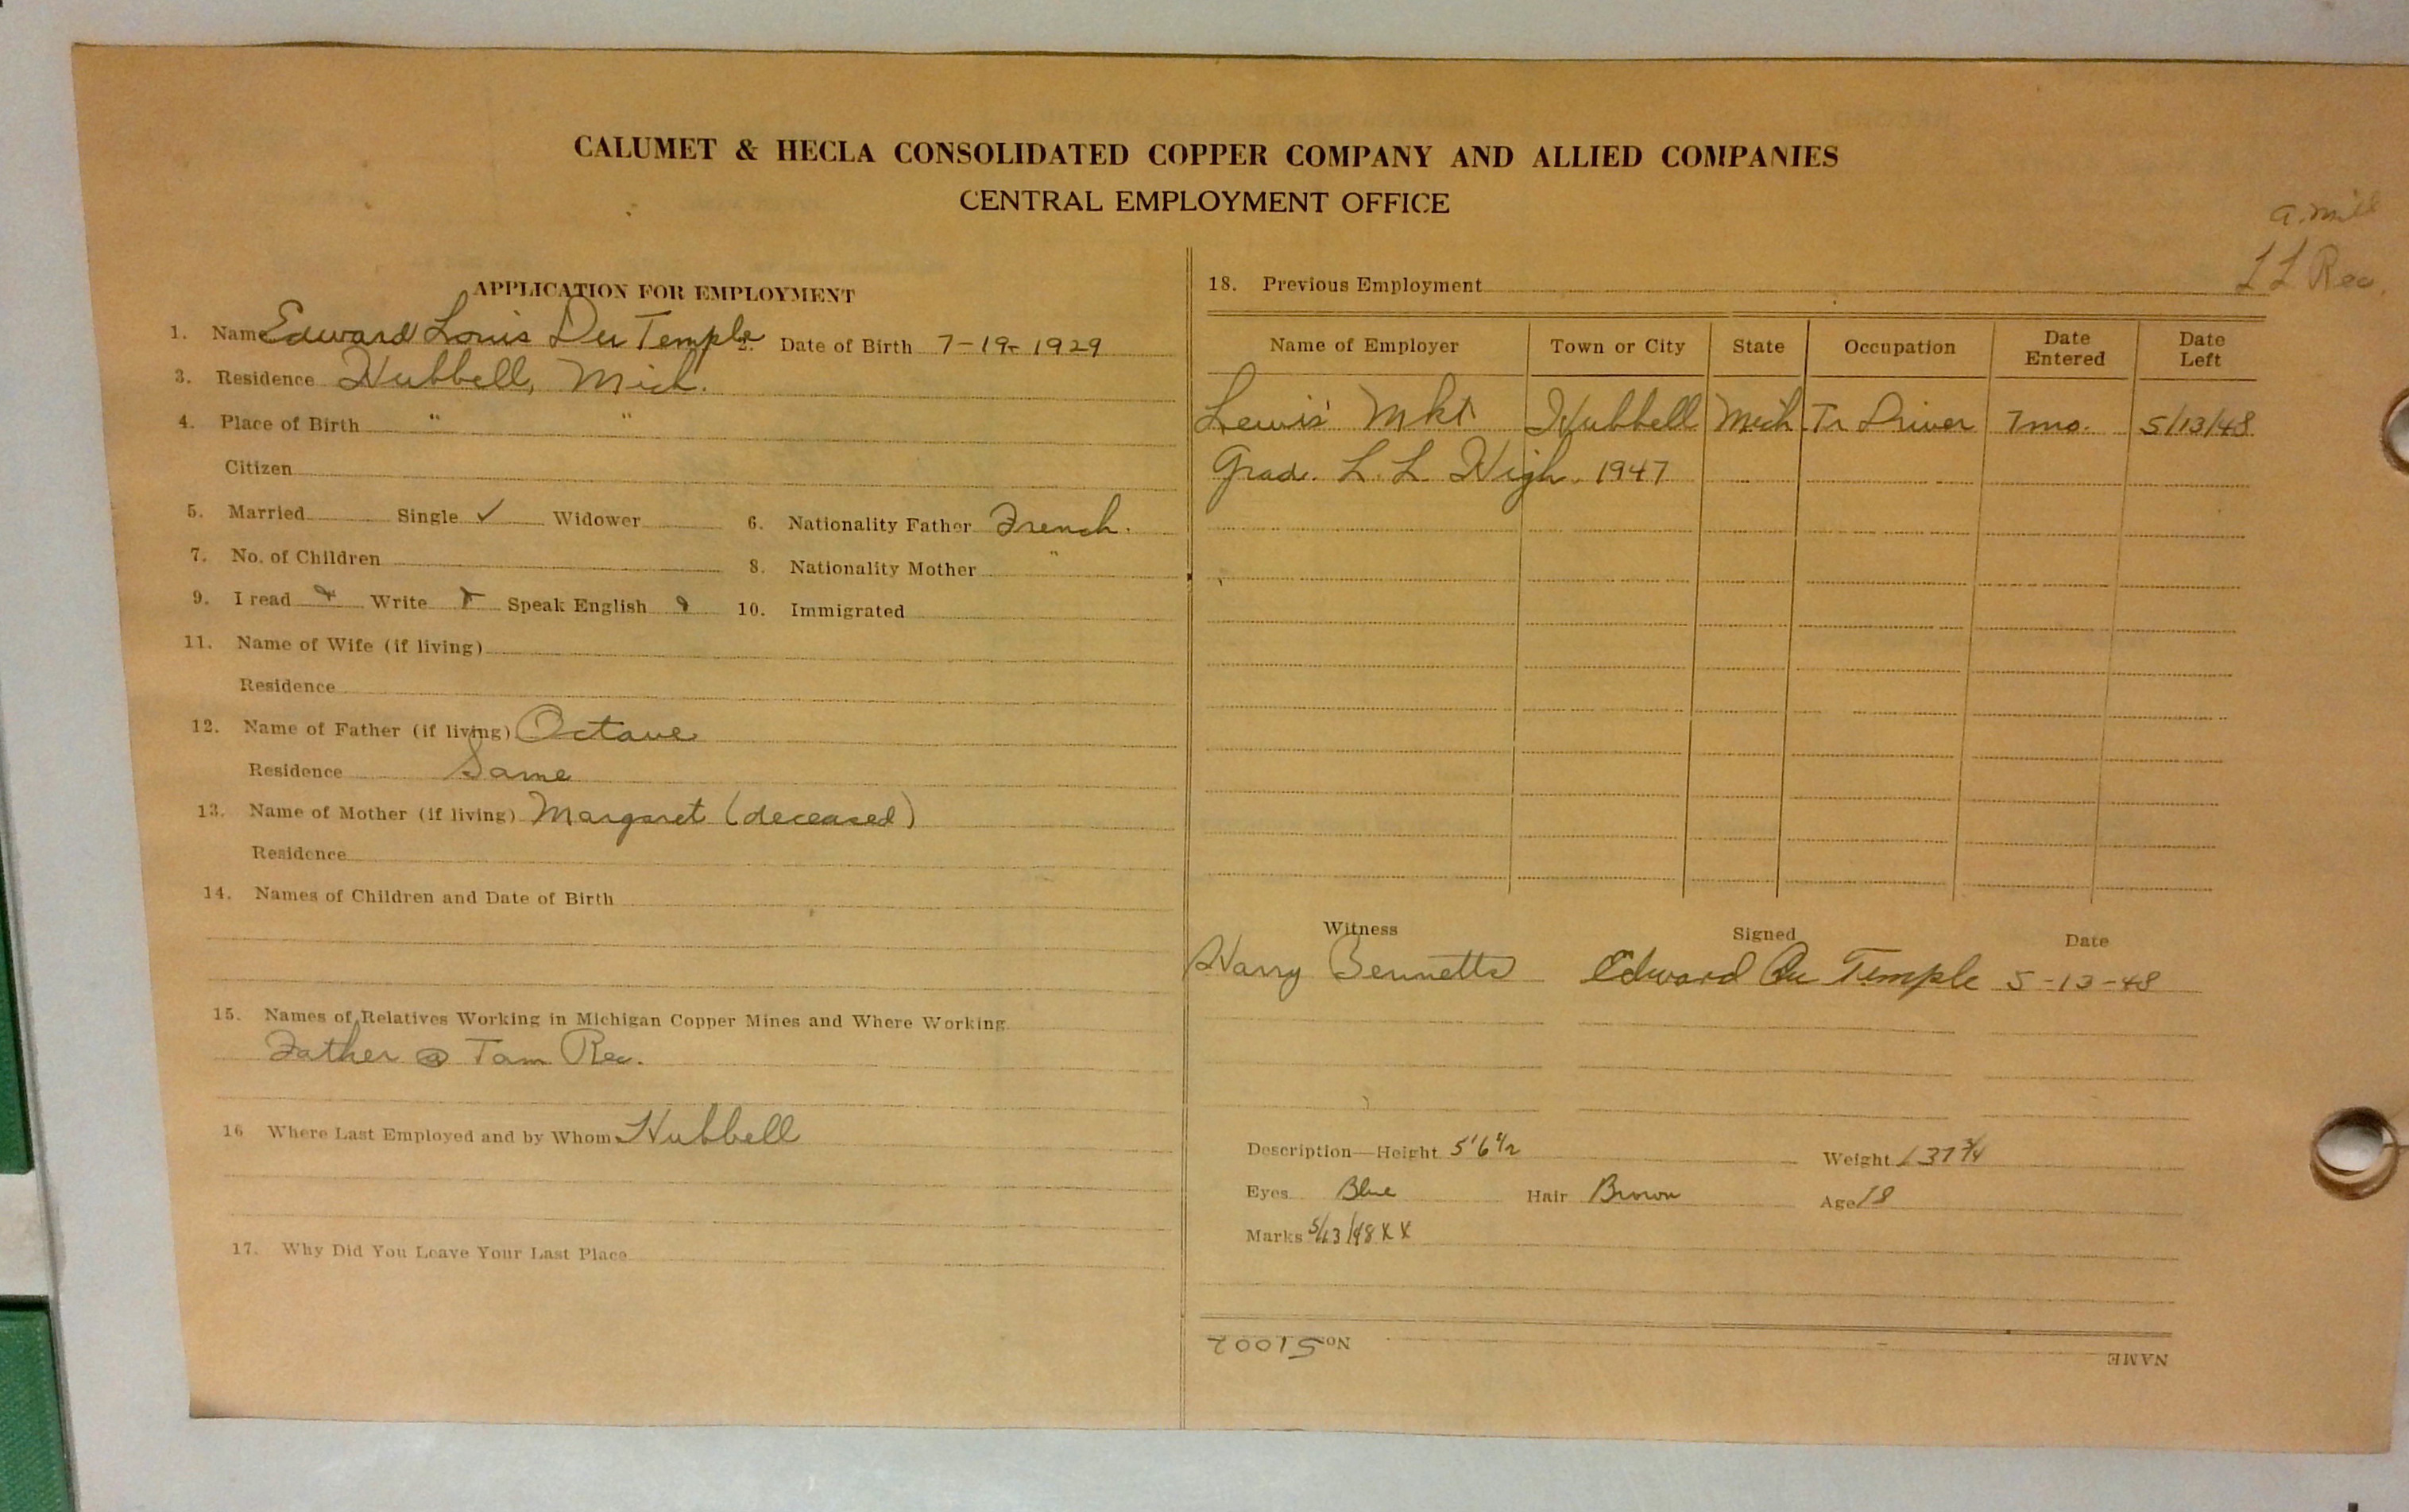 CALUMET & HECLA CONSOLIDATED COPPER COMPANY AND ALLIED COMPANIES
CENTRAL EMPLOYMENT OFFICE
a. mill
L L Rec.
APPLICATION FOR EMPLOYMENT
1. Name Edward Louis Du Temple 2. Date of Birth 7-19-1929
3. Residence Hubbell, Mich.
4. Place of Birth " "
Citizen
5. Married Single ✓ Widower 6. Nationality Father French.
7. No. of Children 8. Nationality Mother "
9. I read Write Speak English 10. Immigrated
11. Name of Wife (if living)
Residence
12. Name of Father (if living) Octave
Residence Same
13. Name of Mother (if living) Margaret (deceased)
Residence
14. Names of Children and Date of Birth
15. Names of Relatives Working in Michigan Copper Mines and Where Working
Father @ Tam Rec.
16 Where Last Employed and by Whom Hubbell
17. Why Did You Leave Your Last Place
18. Previous Employment
Name of Employer Town or City State Occupation Date Entered Date Left
Lewis' Mkt Hubbell Mich. Tr Driver 7 mo. 5/13/48
Grad. L. L. High. 1947
Witness Signed Date
Harry Bennetts Edward Du Temple 5-13-48
Description—Height 5'6 1/2 Weight 137 3/4
Eyes Blue Hair Brown Age 18
Marks 5/13/48 X X
No. 51002 NAME